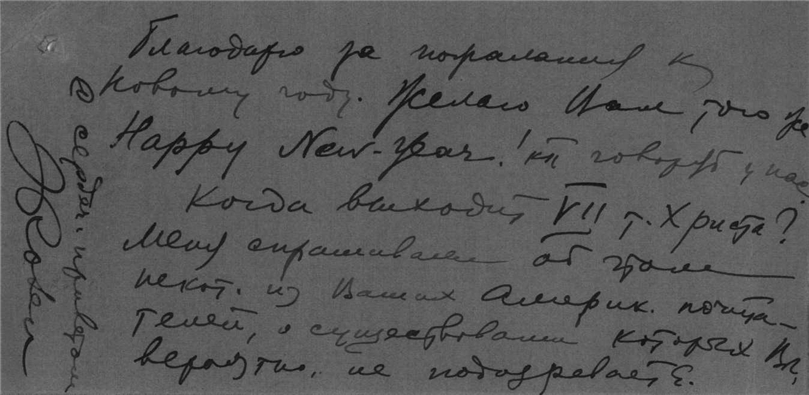 Благодарю за пожелания к
Новому году. Желаю Вам того же
Happy New-Year! как говорят у нас.
Когда выходит VII т. Христа?
Меня спрашивали об этом
некот. из Ваших Америк. почита-
телей, о существовании которых Вы,
вероятно, не подозреваете.
С сердеч. приветом